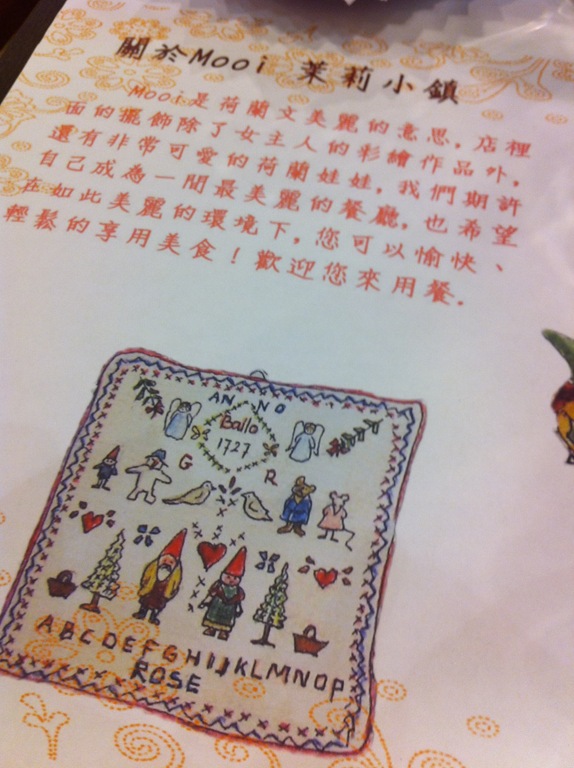 關於Mooi 茉莉小鎮
Mooi是荷蘭文美麗的意思，店裡
面的擺飾除了女主人的彩繪作品外，
還有非常可愛的荷蘭娃娃，我們期許
自己成為一間最美麗的餐廳，也希望
在如此美麗的環境下，您可以愉快、
輕鬆的享用美食！歡迎您來用餐．
AN NO
Balla
1727
G R
ABCDEFGHIJKLMNOP
ROSE